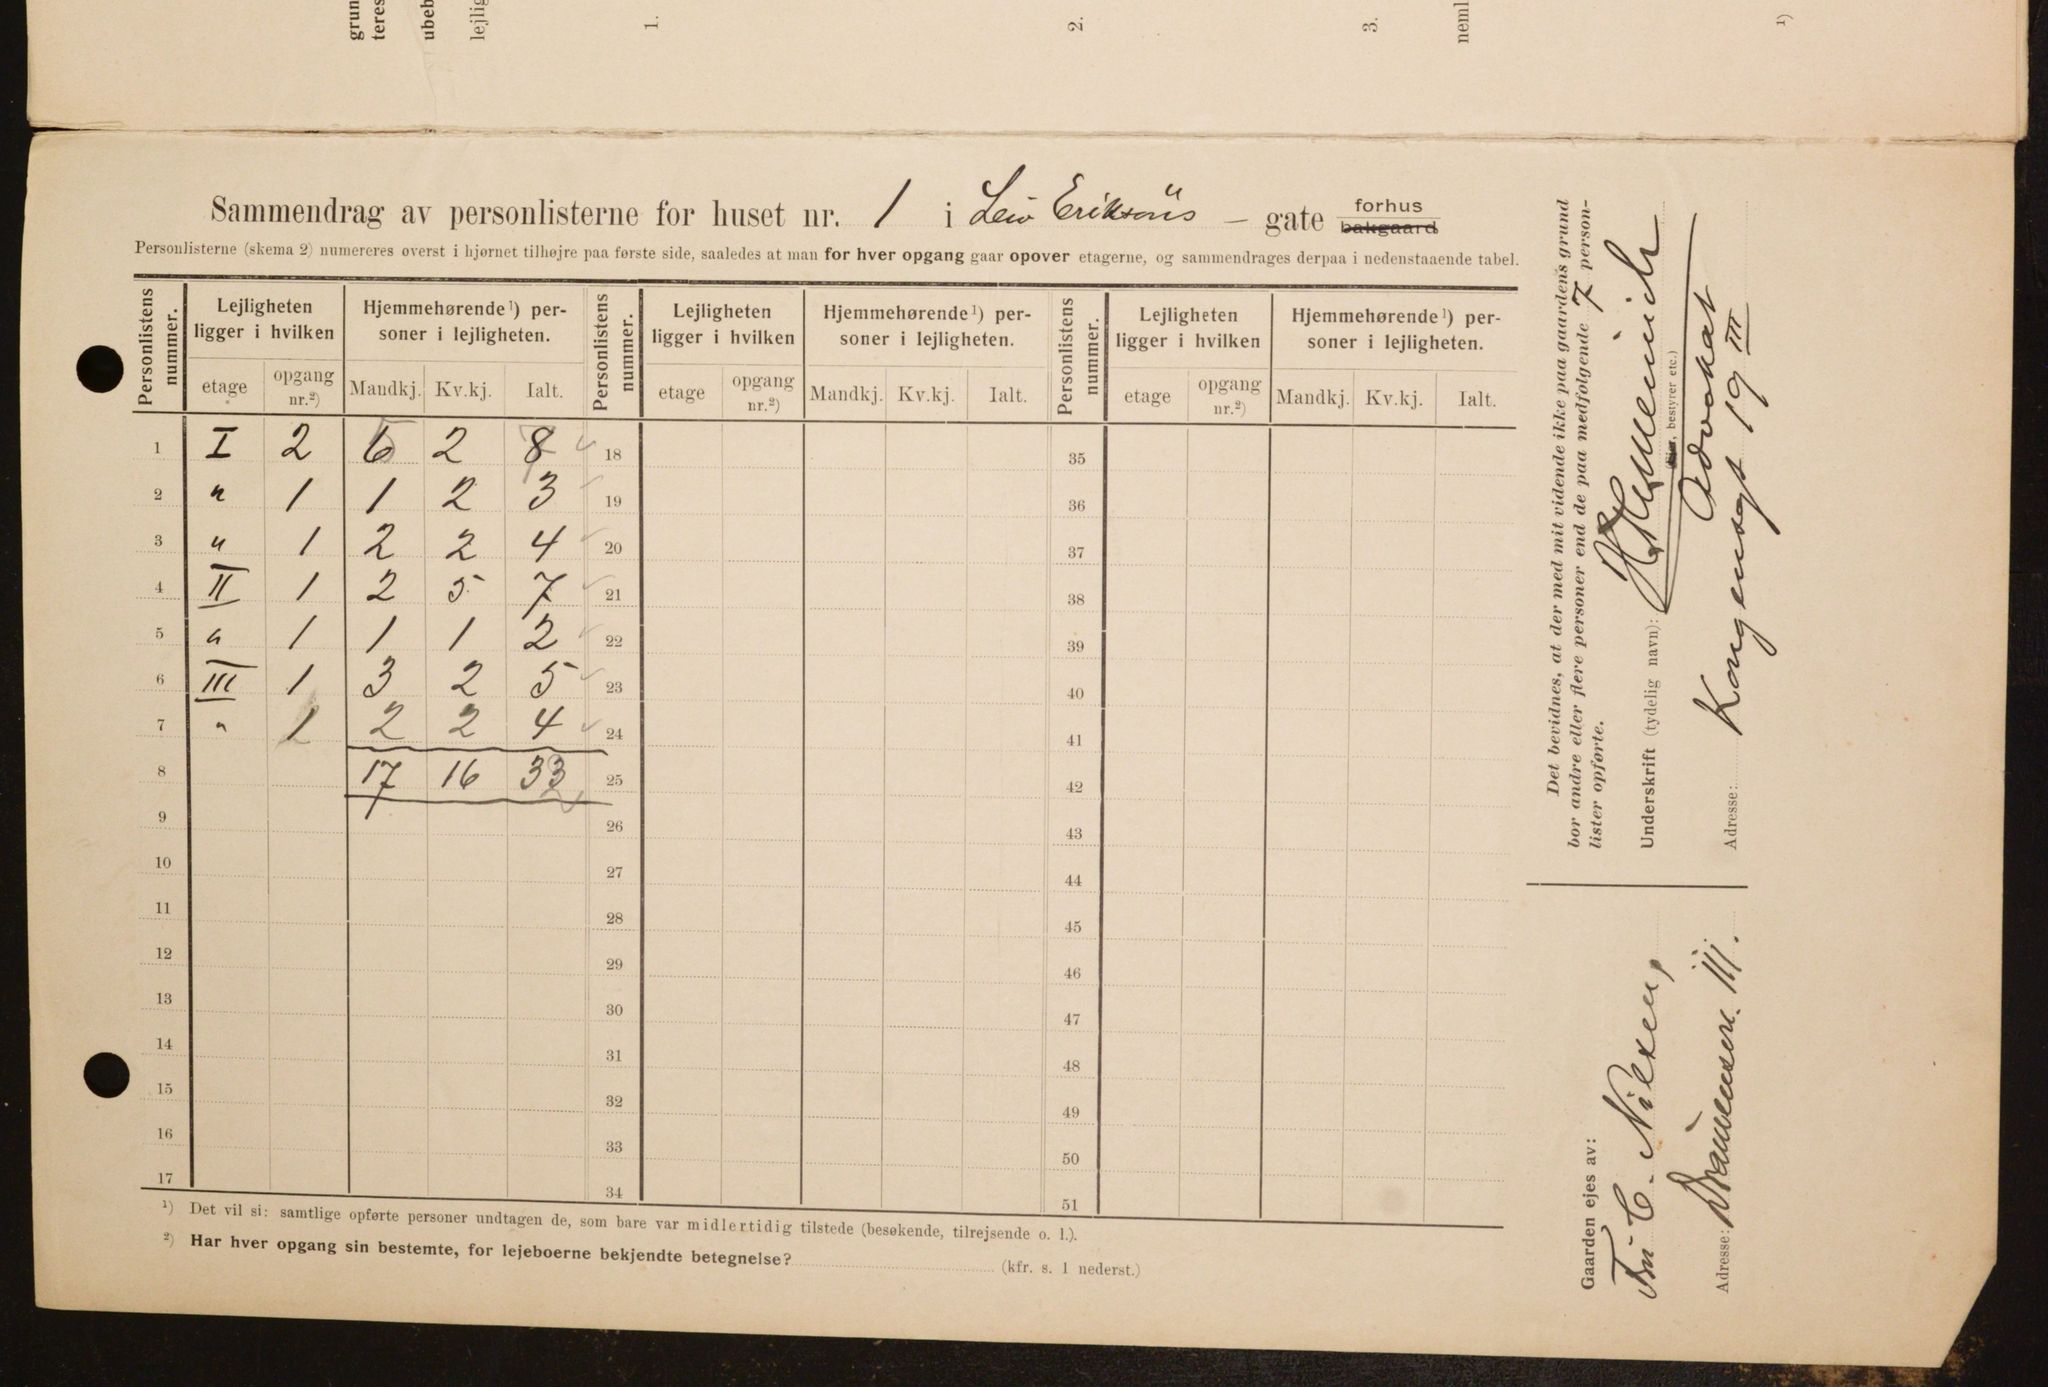 grun
teres
ubeb
lejlig
1.
2.
3.
neml
1)
Sammendrag av personlisterne for huset nr. 1 i Leiv Eriksøns - gate forhus bakgaard
Personlisterne (skema 2) numereres øverst i hjørnet tilhøjre paa første side, saaledes at man for hver opgang gaar opover etagerne, og sammendrages derpaa i nedenstaaende tabel.
Personlistens nummer. Lejligheten ligger i hvilken Hjemmehørende¹) personer i lejligheten. Personlistens nummer. Lejligheten ligger i hvilken Hjemmehørende¹) personer i lejligheten. Personlistens nummer. Lejligheten ligger i hvilken Hjemmehørende¹) personer i lejligheten.
etage opgang nr.²) Mandkj. Kv.kj. Ialt. etage opgang nr.²) Mandkj. Kv.kj. Ialt. etage opgang nr.²) Mandkj. Kv.kj. Ialt.
1 I 2 6 2 8 18 35
2 " 1 1 2 3 19 36
3 " 1 2 2 4 20 37
4 II 1 2 5 7 21 38
5 " 1 1 1 2 22 39
6 III 1 3 2 5 23 40
7 " 1 2 2 4 24 41
8 17 16 33 25 42
9 26 43
10 27 44
11 28 45
12 29 46
13 30 47
14 31 48
15 32 49
16 33 50
17 34 51
¹) Det vil si: samtlige opførte personer undtagen de, som bare var midlertidig tilstede (besøkende, tilrejsende o. l.).
²) Har hver opgang sin bestemte, for lejeboerne bekjendte betegnelse? (kfr. s. 1 nederst.)
Det bevidnes, at der med mit vidende ikke paa gaardens grund
bor andre eller flere personer end de paa medfølgende 7 person-
lister opførte.
Underskrift (tydelig navn):
(Eier, bestyrer etc.)
Advokat
Adresse: Kongensgt 19 III
Gaarden ejes av:
C. Nilsen,
Adresse: Drammensv. 111.